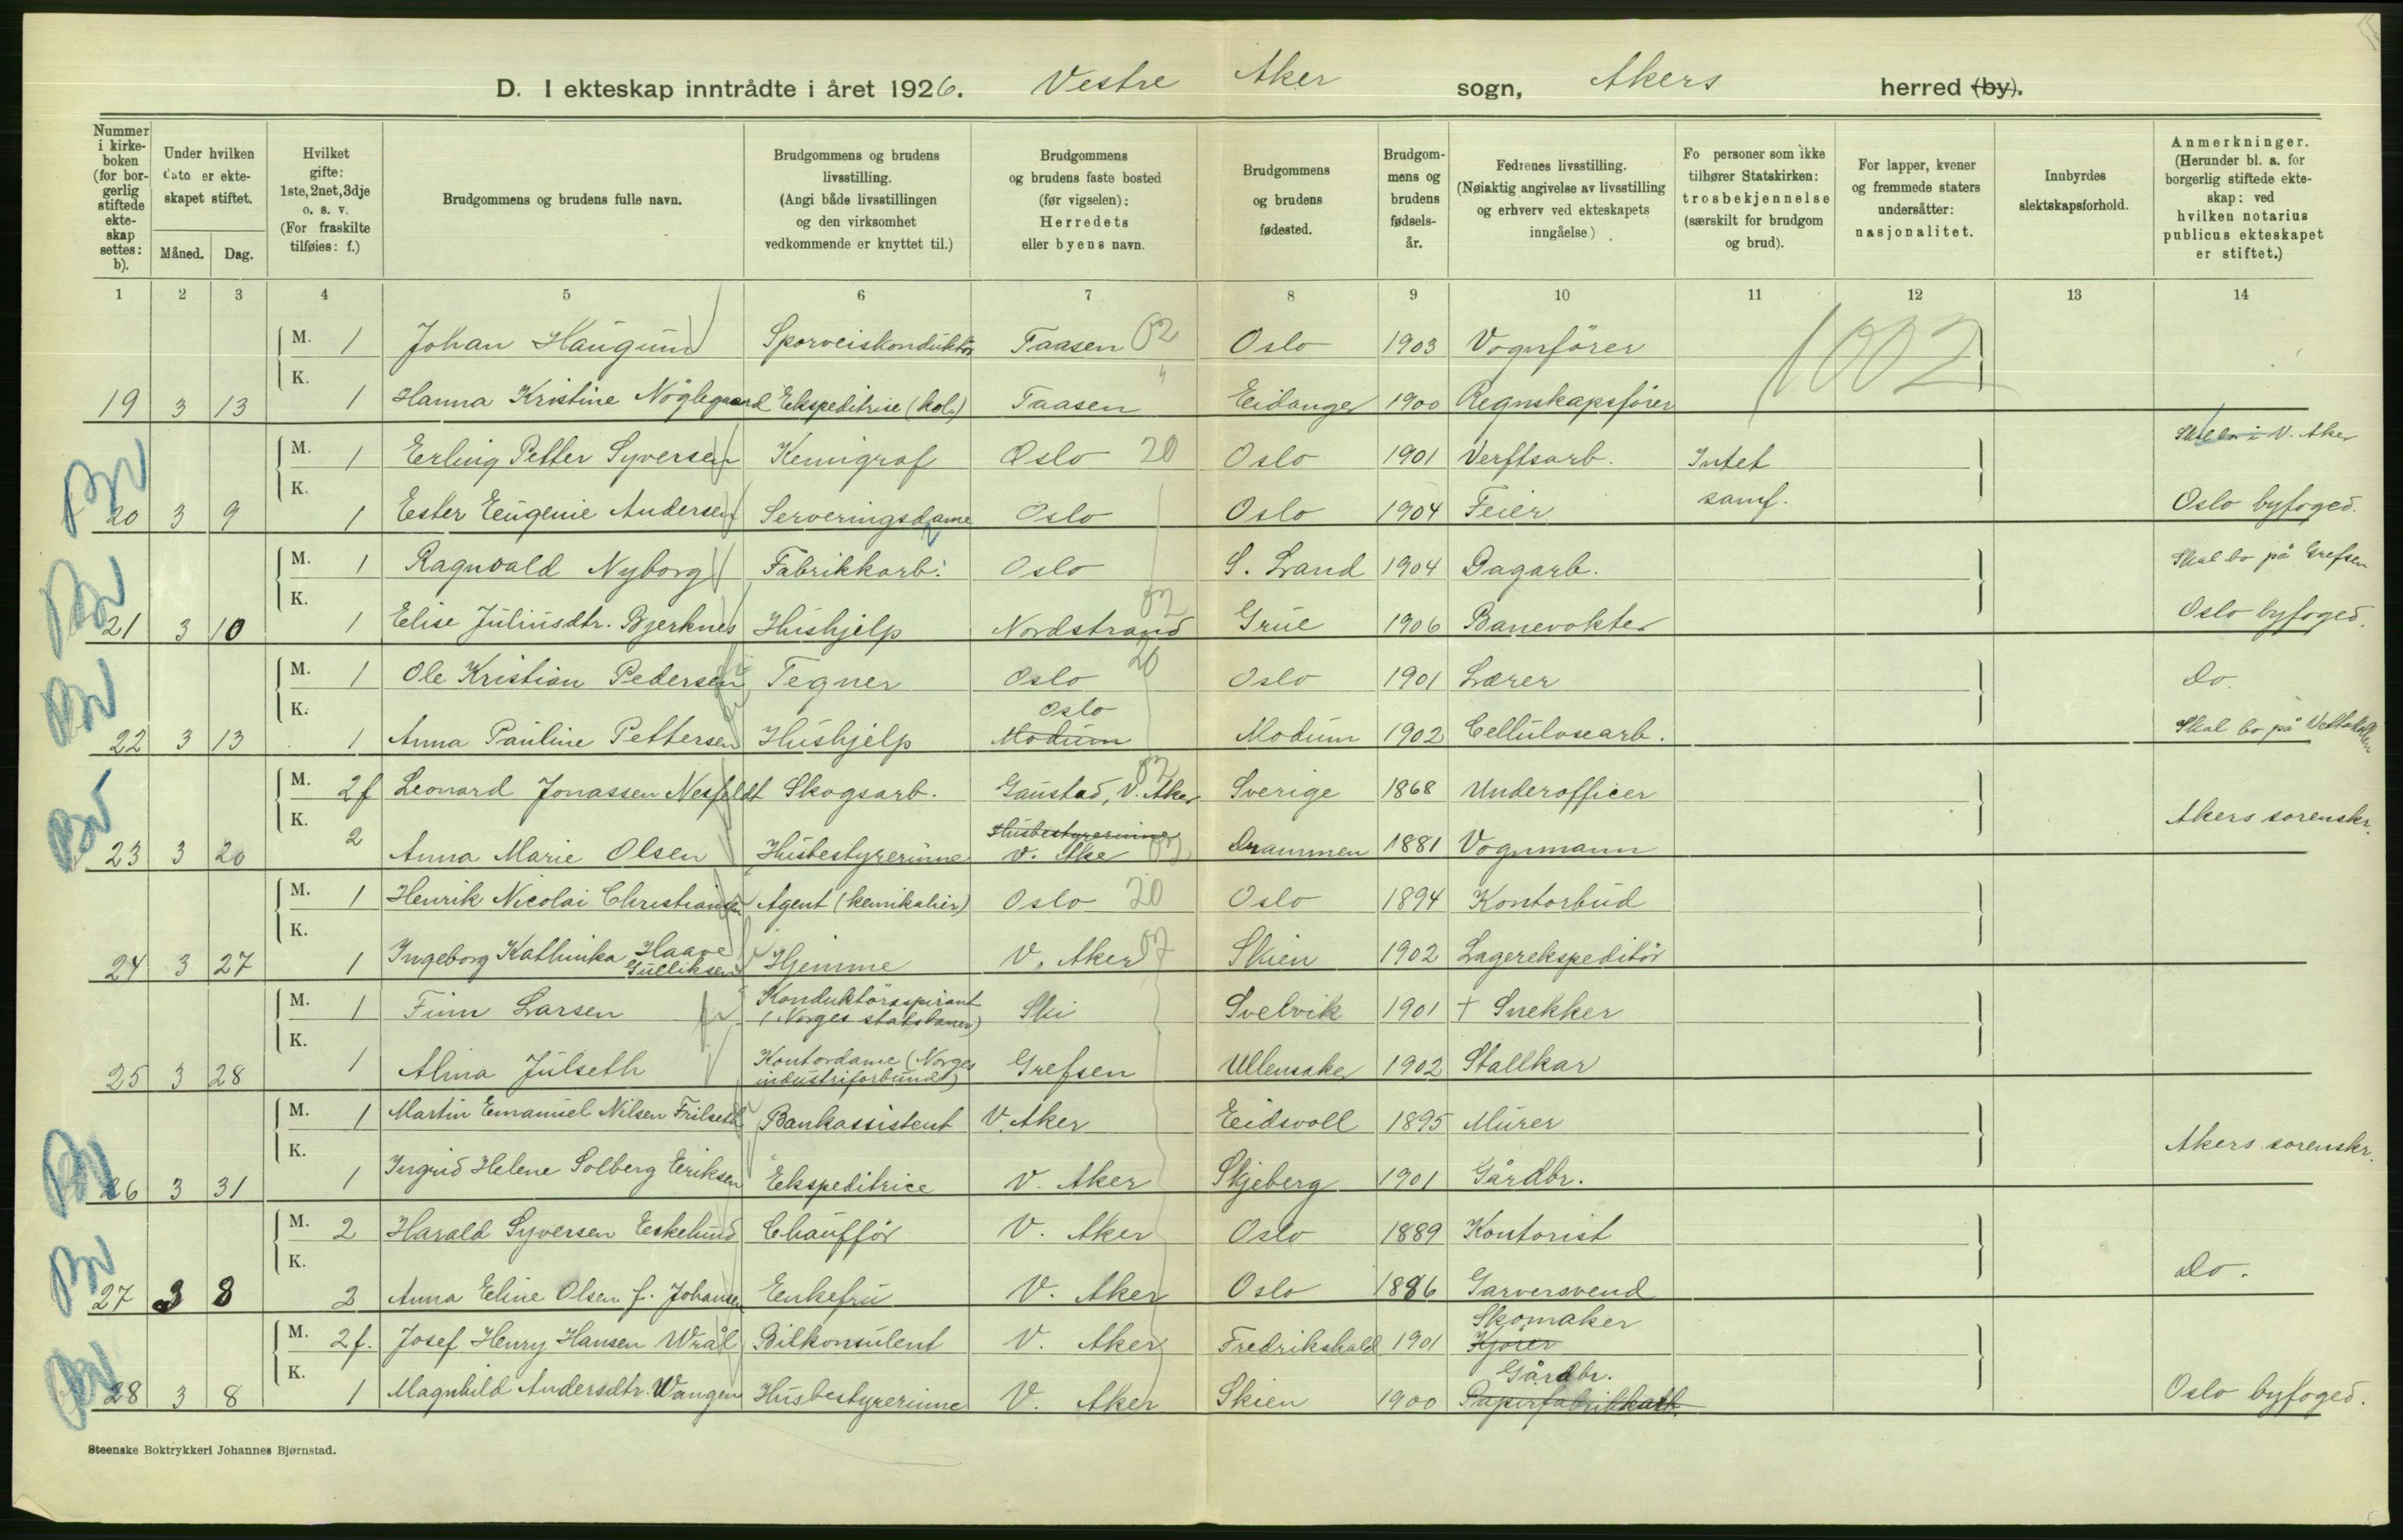 D. I ekteskap inntrådte i året 1926. Vestre Aker sogn, Akers herred (by).
Nummer i kirkeboken (for borgerlig stiftede ekteskap settes: b).
Under hvilken dato er ekteskapet stiftet.
Måned. Dag.
Hvilket gifte: 1ste, 2net, 3dje o. s. v. (For fraskilte tilføies: f.)
Brudgommens og brudens fulle navn.
Brudgommens og brudens livsstilling. (Angi både livsstillingen og den virksomhet vedkommende er knyttet til.)
Brudgommens og brudens faste bosted (før vigselen): Herredets eller byens navn.
Brudgommens og brudens fødested.
Brudgommens og brudens fødselsår.
Fedrenes livsstilling. (Nøiaktig angivelse av livsstilling og erhverv ved ekteskapets inngåelse)
Fo personer som ikke tilhører Statskirken: trosbekjennelse (særskilt for brudgom og brud).
For lapper, kvener og fremmede staters undersåtter: nasjonalitet.
Innbyrdes slektskapsforhold.
Anmerkninger. (Herunder bl. a. for borgerlig stiftede ekteskap: ved hvilken notarius publicus ekteskapet er stiftet.)
1 2 3 4 5 6 7 8 9 10 11 12 13 14
M. 1 Johan Haugund Sporveiskonduktör Taasen 02 Oslo 1903 Vognförer 1002
19 3 13 K. 1 Hanna Kristine Nöglegaard Ekspeditrise (kol.) Taasen " Eidanger 1900 Regnskapsförer
M. 1 Erling Petter Syversen Kemigraf Oslo 20 Oslo 1901 Verftsarb. Intet V. Aker
20 3 9 K. 1 Ester Eugenie Andersen Serveringsdame Oslo Oslo 1904 Feier samf. Oslo byfoged.
M. 1 Ragnvald Nyborg Fabrikkarb. Oslo S. Land 1904 Dagarb. Skal bo på Grefsen
21 3 10 K. 1 Elise Juliusdtr. Bjerknes Hushjelp Nordstrand 02 Grue 1906 Banevokter Oslo byfoged.
M. 1 Ole Kristian Pedersen Tegner Oslo 20 Oslo 1901 Lærer Do.
22 3 13 K. 1 Anna Pauline Pettersen Hushjelp Oslo Modum Modum 1902 Cellulosearb. Skal bo på
M. 2f Leonard Jonassen Nesfeldt Skogsarb. Gaustad, V. Aker 02 Sverige 1868 Underofficer
23 3 20 K. 2 Anna Marie Olsen Husbestyrerinne Husbestyrerinne V. Ake 02 Drammen 1881 Vognmann Akers sorenskr.
M. 1 Henrik Nicolai Christiansen Agent (kemikalier) Oslo 20 Oslo 1894 Kontorbud
24 3 27 K. 1 Ingeborg Kathinka Haave Gulliksen Hjemme V. Aker 02 Skien 1902 Lagerekspeditör
M. 1 Finn Larsen Konduktöraspirant (Norges statsbaner) Ski Svelvik 1901 + Snekker
25 3 28 K. 1 Alma Julseth Kontordame (Norges industriforbund) Grefsen Ullensaker 1902 Stallkar
M. 1 Martin Emanuel Nilsen Frilseth Bankassistent V. Aker Eidsvoll 1895 Murer
26 3 31 K. 1 Ingrid Helene Solberg Eriksen Ekspeditrice V. Aker Skjeberg 1901 Gårdbr. Akers sorenskr.
M. 2 Harald Syversen Eskelund Chaufför V. Aker Oslo 1889 Kontorist
27 3 8 K. 2 Anna Eline Olsen f. Johansen Enkefru V. Aker Oslo 1886 Garversvend Do.
M. 2f. Josef Henry Hansen Wrål Bilkonsulent V. Aker Fredrikshald 1901 Skomaker
28 3 8 K. 1 Magnhild Andersdtr. Wangen Husbestyrerinne V. Aker Skien 1900 Gårdbr. Papirfabrikkarb. Oslo byfoged.
Steenske Boktrykkeri Johannes Bjørnstad.